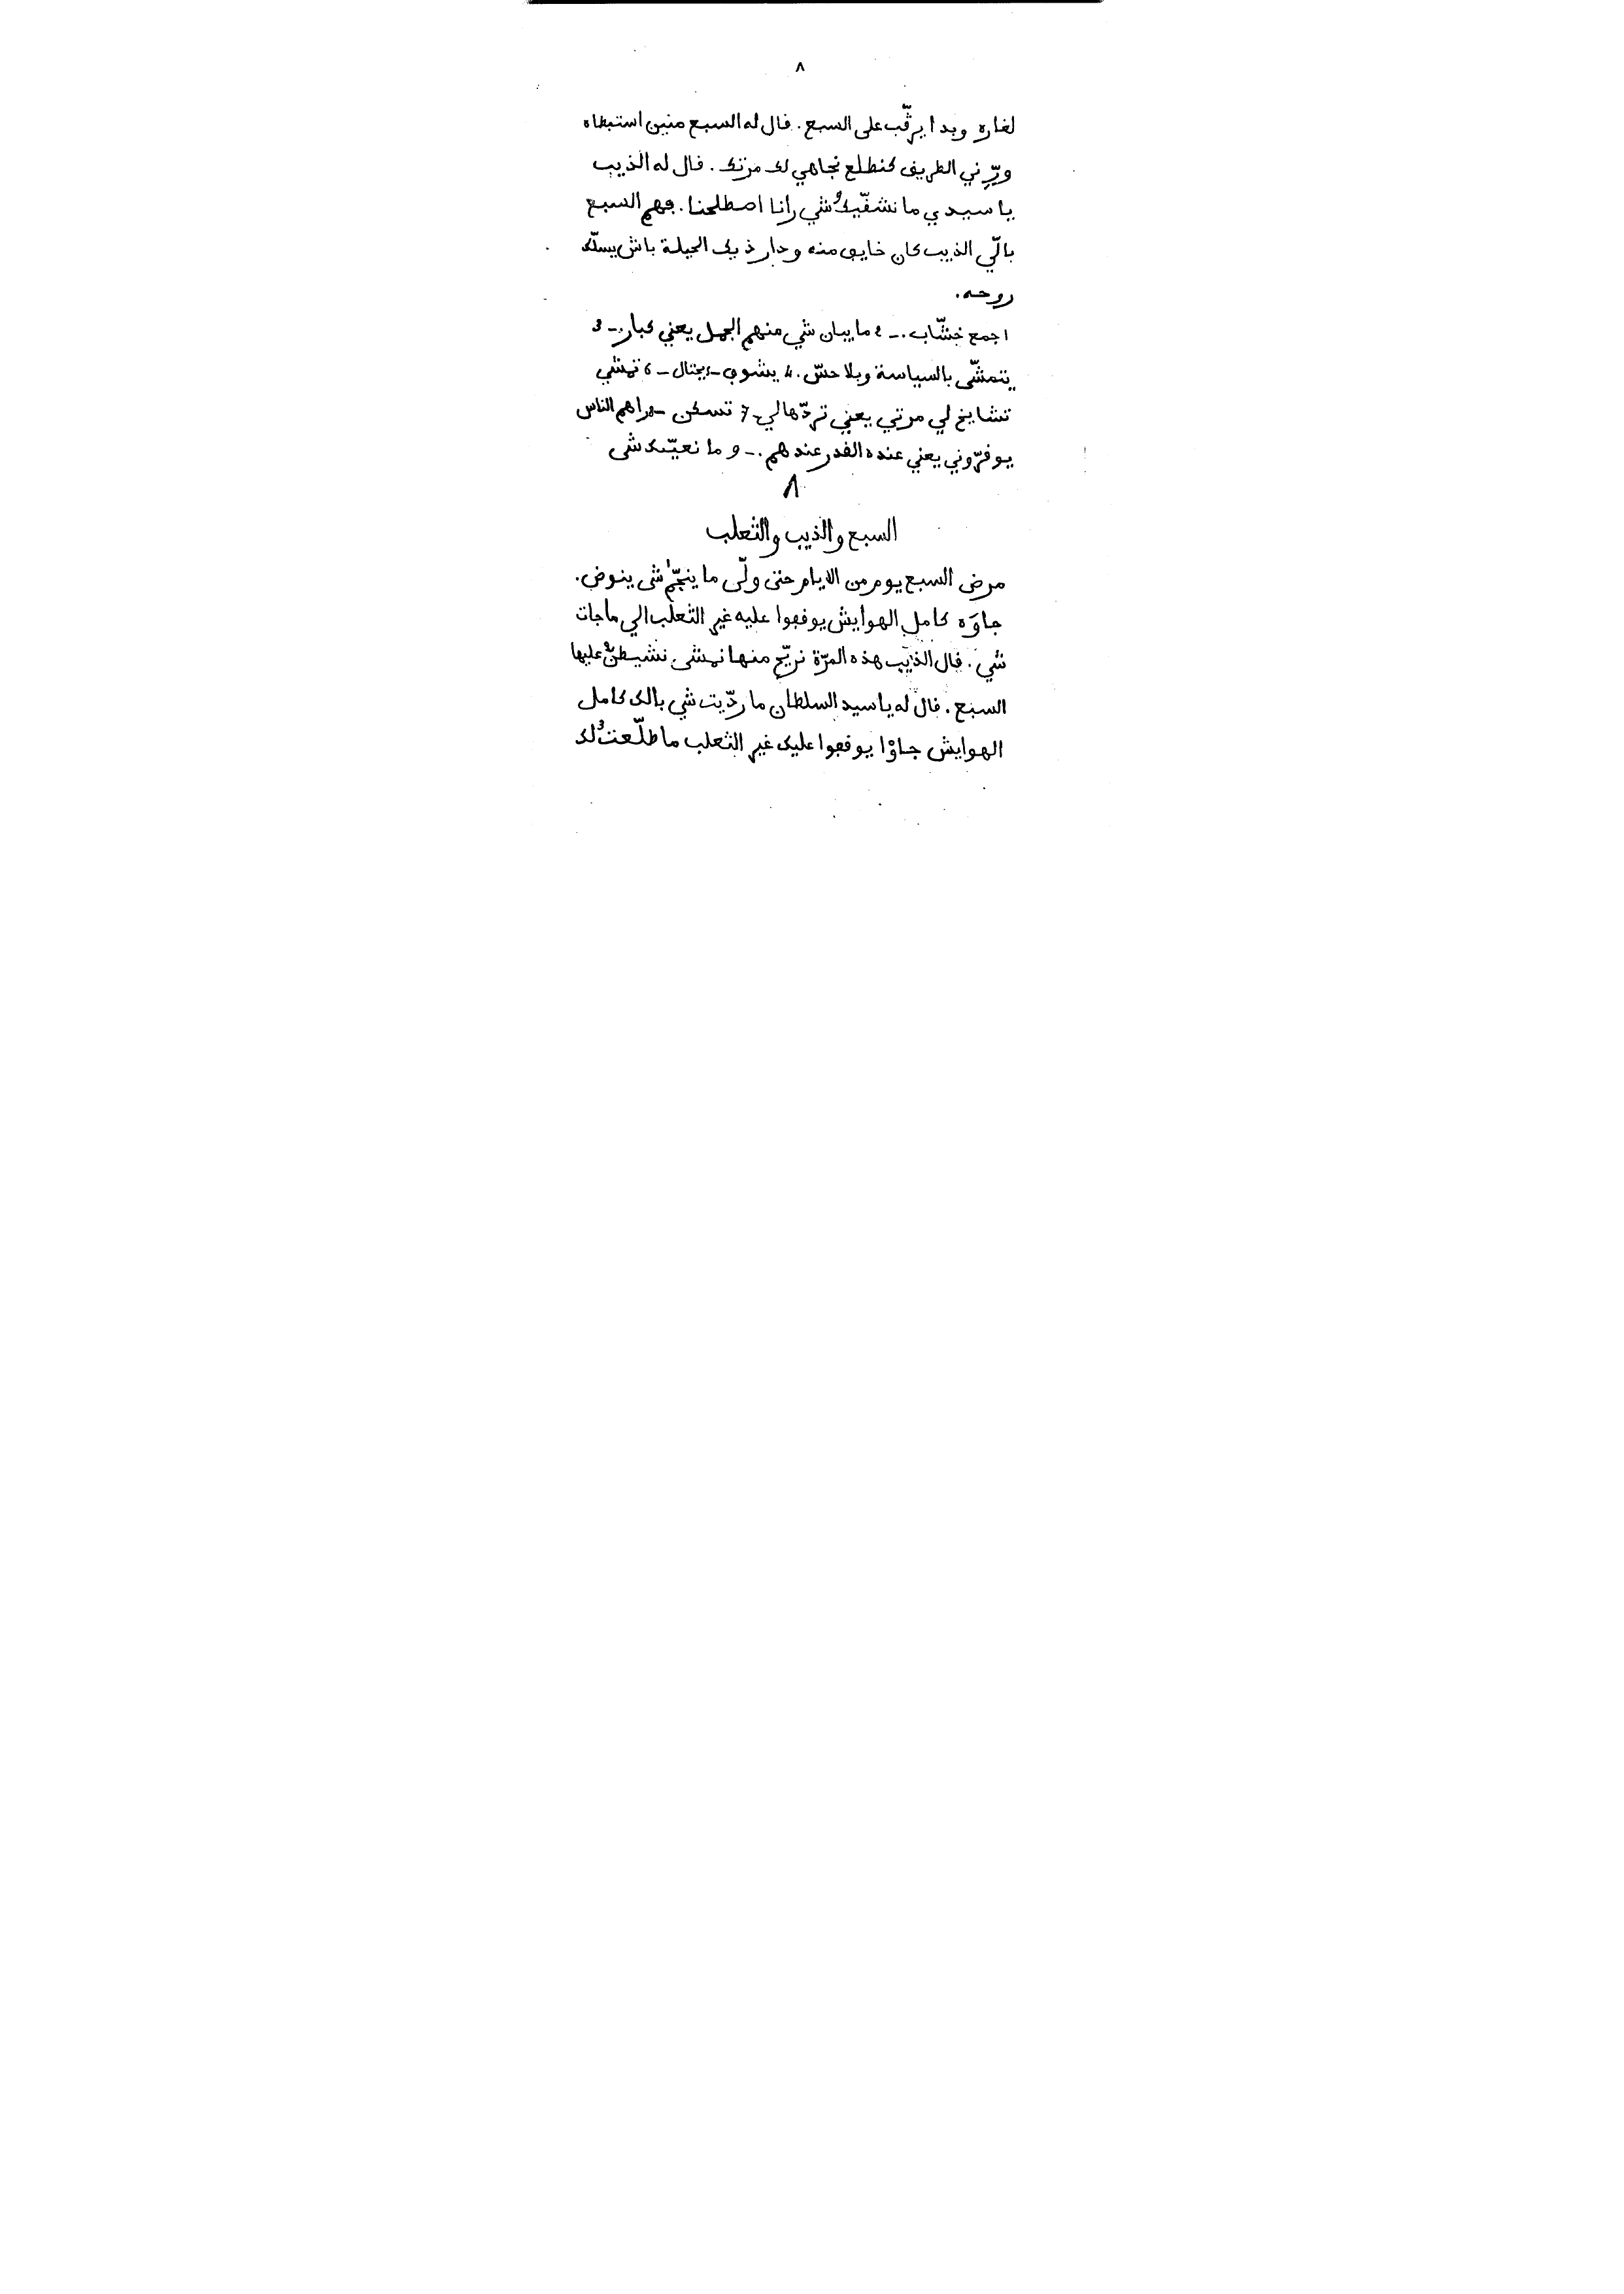 ٨
لغاره وبدا يرڧّب على السبع. ڧال له السبع منين استبطاه
ورّني الطريڧ كنطلع نجاهي لك مرتك. ڧال له الذيب
يا سيدي ما نشڧّيكْ شي رانا اصطلحنا. ڢهم السبع
بالّي الذيب كان خايڢ منه ودار ذيك الحيلة باش يسلّك
روحه.
1 جمع خشّاب. ـ 2 ما يبان شي منهم الجمل يعني كبار. ـ 3
يتمشّى بالسياسة وبلا حسّ. 4 يشوڢ ـ 5 يختال ـ 6 تمشي
تشايخ لي مرتي يعني تردّها لي ـ 7 تسكن ـ 8 راهم الناس
يوڧرّوني يعني عنده الڧدر عندهم. ـ 9 ما نعيّيك شى
٨
السبع والذيب والثعلب
مرض السبع يوم من الايام حتى ولّى ما ينجّم شى ينوض.
جاوَه كامل الهوايش يوڧڢوا عليه غير الثعلب الي ما جات
شي. ڧال الذيب هذه المرّة نريّح منها نمشي نشيطن عليها
السبع. ڧال له يا سيد السلطان ما ردّيت شي بالك كامل
الهوايش جاوْا يوڧڢوا عليك غير الثعلب ما طلّعتْ لك